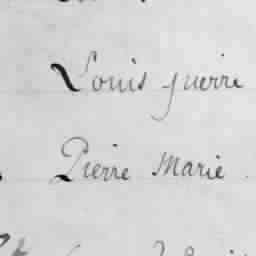 Louis guerre
Pierre Marie